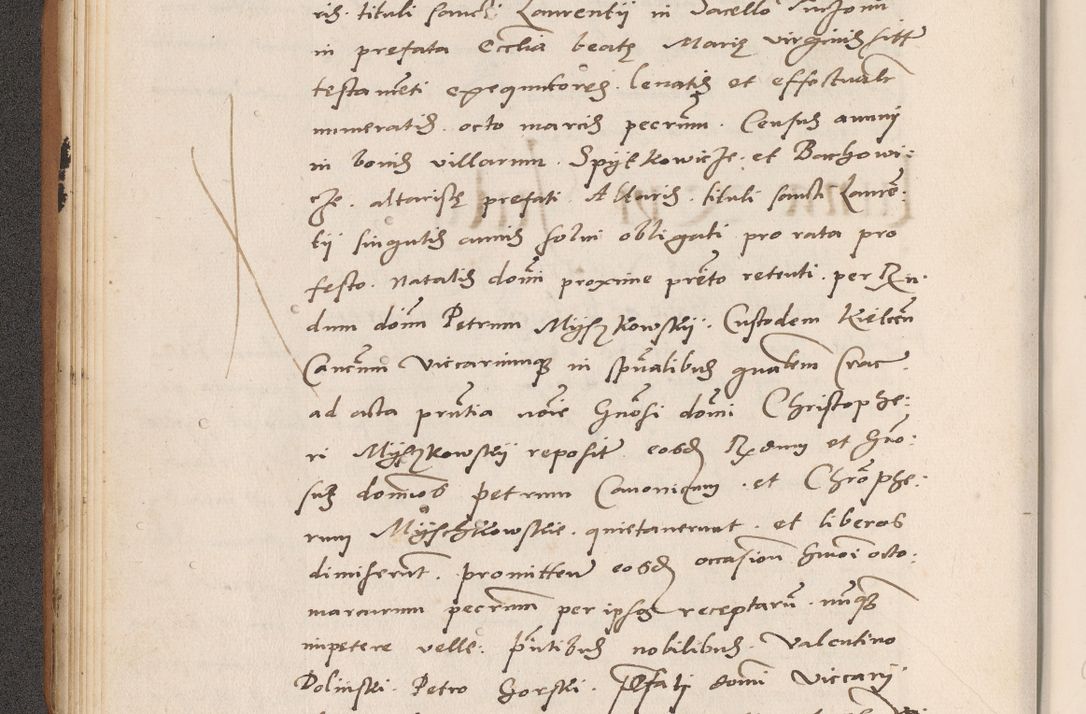 ris tituli sancti Laurentij in Sacello
in prefata Ecclia beatę Marię virginis sitt
testameti exequutores levatis et effectualr
numeratis octo marcis pecrum Census annuj
in bonis villarum Spytkowicze et Bachowi:
cze altaristę prefati Altaris tituli sancti Lauren:
tij singulis annis solui obligati pro rata pro
festo Natalis domi proxime preto retenti per Rn
dum dom Petrum Myszkowskij Custodem Kielcen
Cancum Viccariumque in spualibus gnalem Crac
ad acta prntia noie Gnosi domi Christophe:
ri Myszkowskij reposit eosd Rdum et Gno:
sus domios Petrum Canonicum et Chrophe:
rum Myschkowskie quietauerunt et liberos
dimiserunt promitten eosd occasion hmoi octo
marcarum pecrium per ipsos receptaru nunque
impetere velle pntibus nobilibus Valentino
Dolinski Petro Gorski pfati domi Viccarij